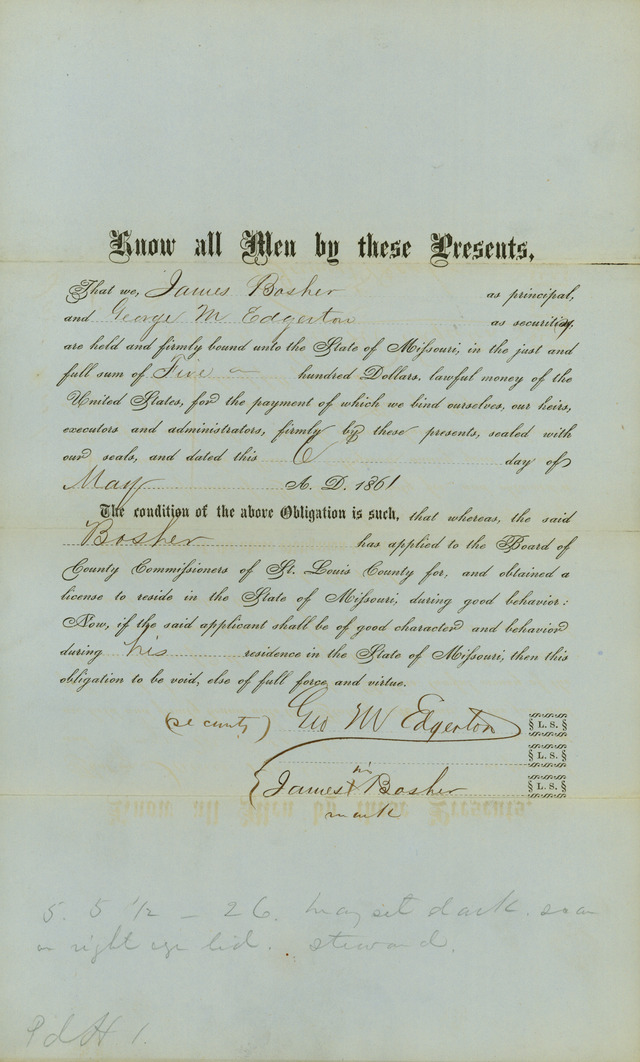 Know all Men by these Presents,
That we, James Bosher as principal,
and George M Edgerton as security,
are held and firmly bound unto the State of Missouri, in the just and
full sum of Five hundred Dollars, lawful money of the
United States, for the payment of which we bind ourselves, our heirs,
executors and administrators, firmly by these presents, sealed with
our seals, and dated this 6 day of
May A. D. 1861
The condition of the above Obligation is such, that whereas, the said
Bosher has applied to the Board of
County Commissioners of St. Louis County for, and obtained a
license to reside in the State of Missouri, during good behavior:
Now, if the said applicant shall be of good character and behavior
during his residence in the State of Missouri, then this
obligation to be void, else of full force and virtue.
(security) Geo M Edgerton § L. S. §
§ L. S. §
his
James X Bosher § L. S. §
mark
5. 5 1/2 - 26. dark. scar
on right eye lid. steward.
Pd $1.